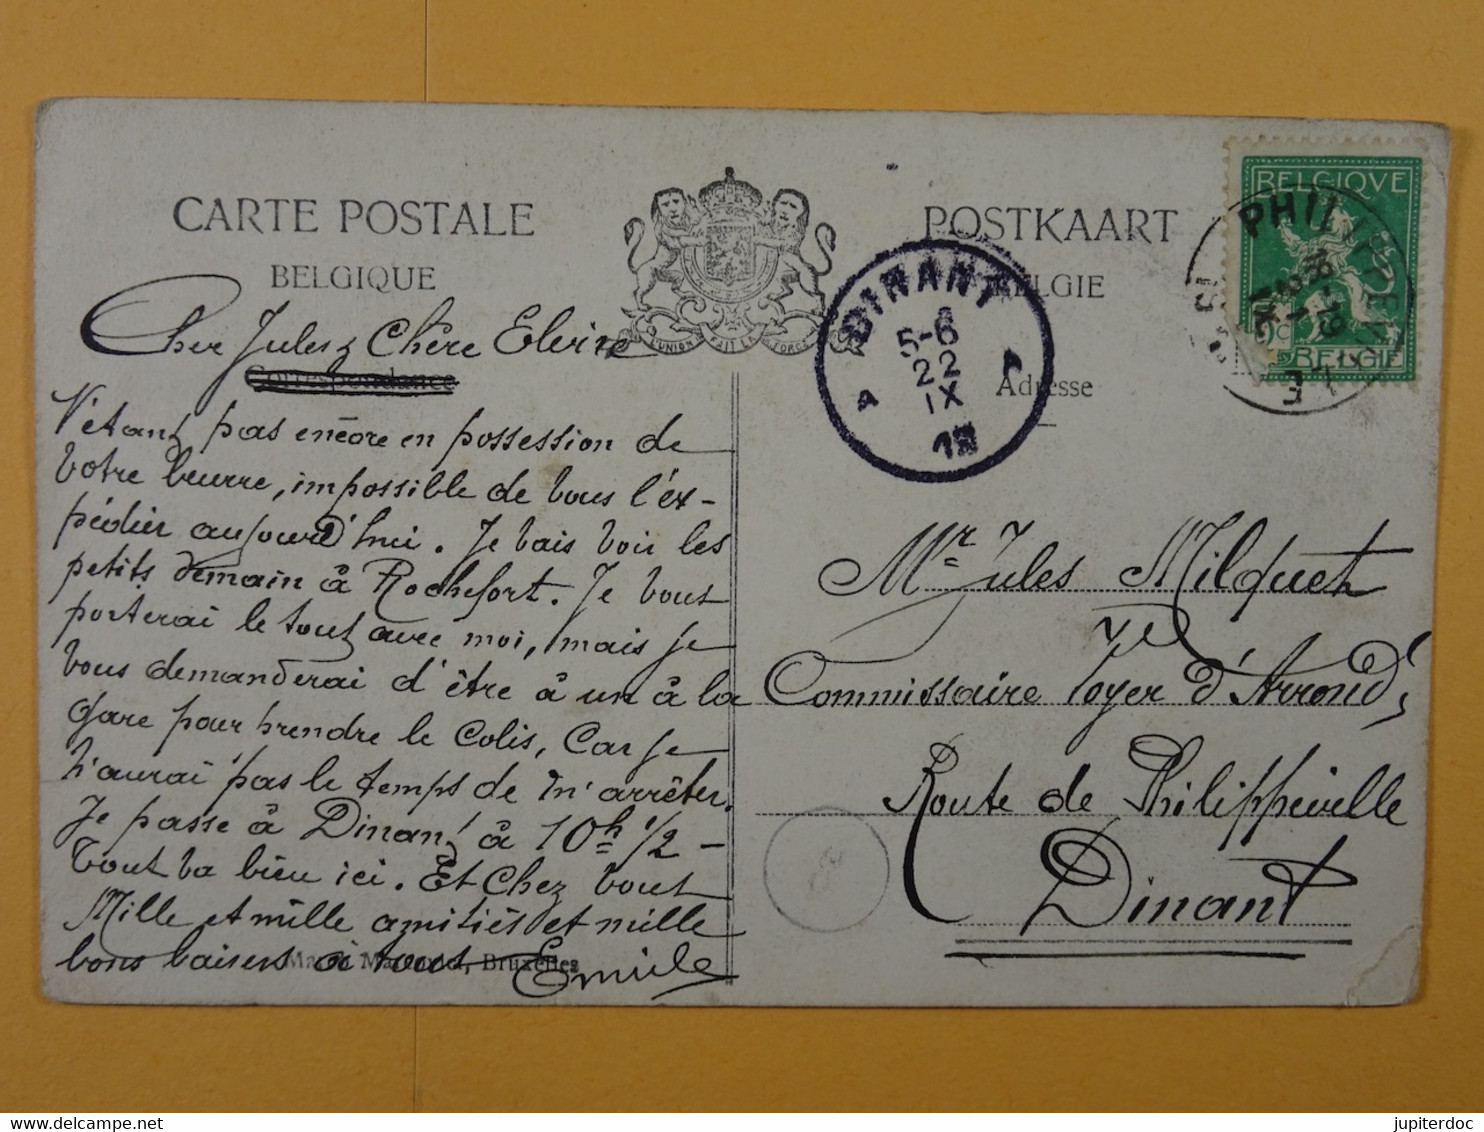 CARTE POSTALE
BELGIQUE
POSTKAART
BELGIE
L'UNION FAIT LA FORCE
BELGIQVE
BELGIË
PHILIPPEVILLE
DINANT
5-6
22
IX
A A
Cher Jules & Chère Elvire
Correspondance
Adresse
N'étant pas encore en possession de
votre beurre, impossible de vous l'ex-
pédier aujourd'hui. Je vais voir les
petits demain à Rochefort. Je vous
porterai le tout avec moi, mais je
vous demanderai d'être à un à la
gare pour prendre le colis, car je
n'aurai pas le temps de m'arrêter.
Je passe à Dinant à 10h 1/2 –
Tout va bien ici. Et chez vous
Mille et mille amitiés et mille
bons baisers à tous Emile
Bruxelles
Mr Jules Milquet
Commissaire Voyer d'Arrond,
Route de Philippeville
Dinant
jupiterdoc